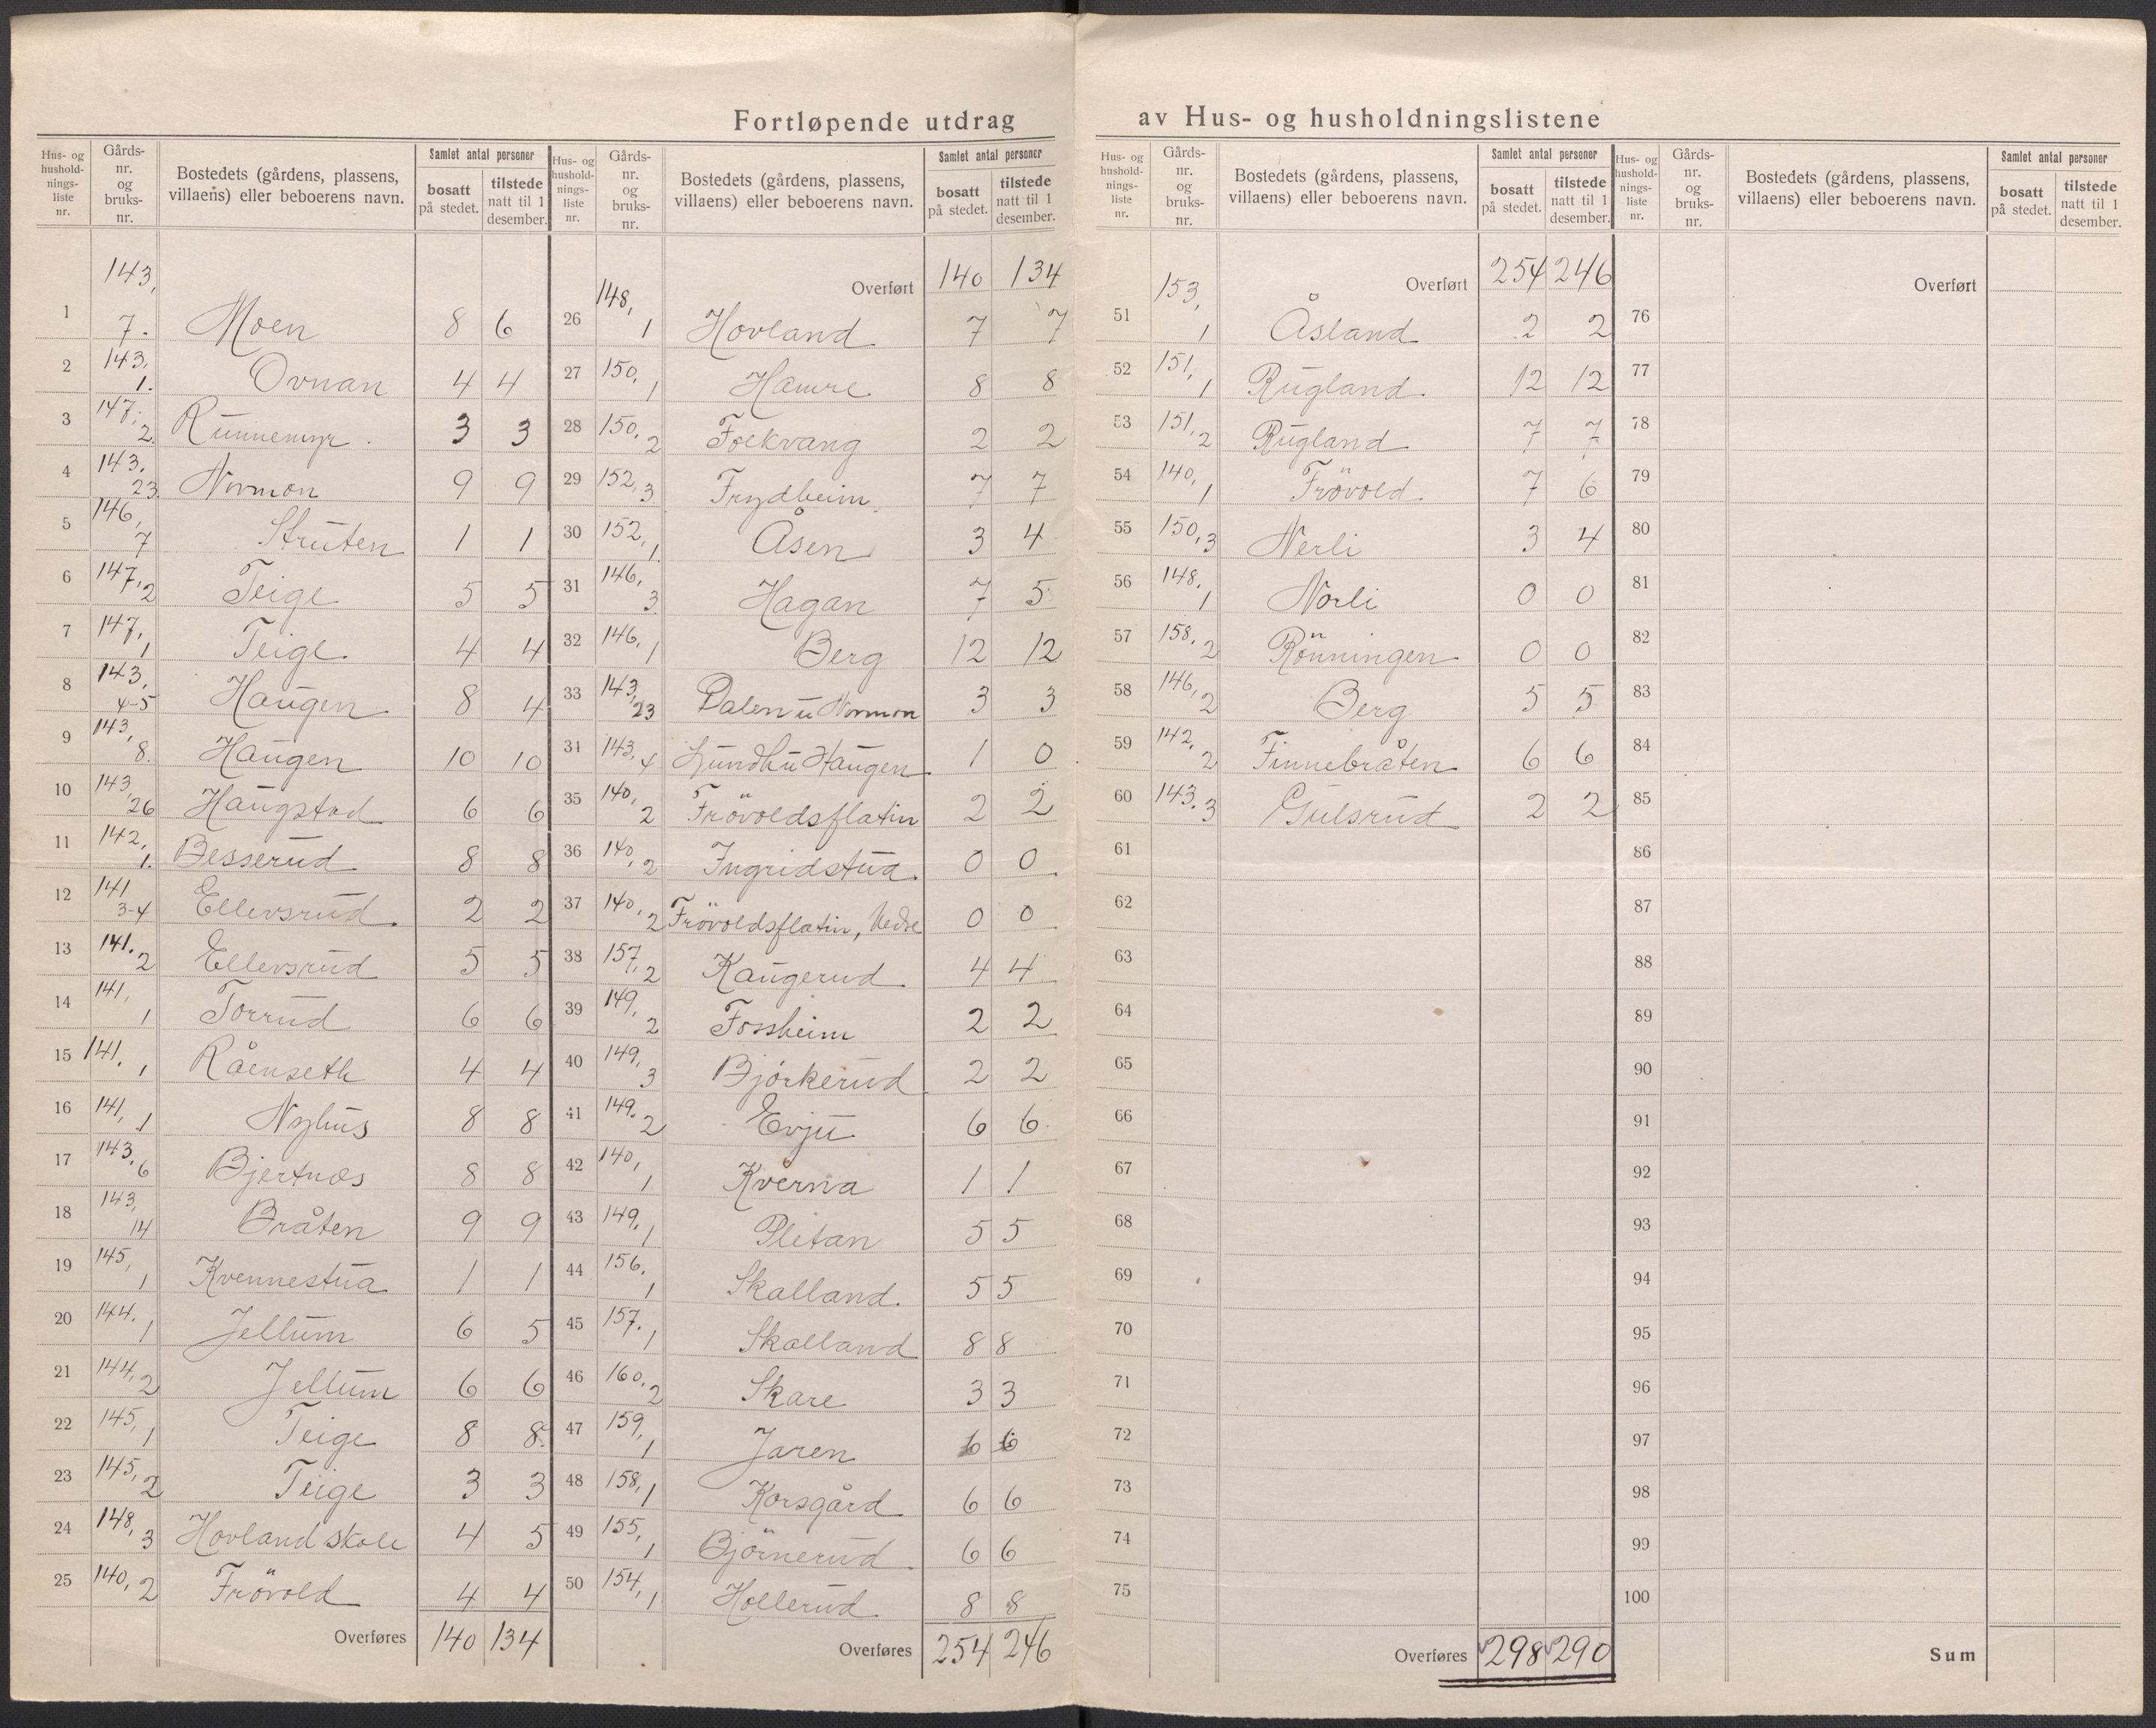 Fortløpende utdrag av Hus- og husholdningslistene
Hus- og husholdnings- liste nr. Gårds- nr. og bruks- nr. Bostedets (gårdens, plassens, villaens) eller beboerens navn. Samlet antal personer bosatt på stedet. tilstede natt til 1 desember.
1 143, 7. Moen 8 6
2 143, 1. Ovnan 4 4
3 147, 2. Runnemyr. 3 3
4 143, 23. Normon 9 9
5 146, 7 Struten 1 1
6 147, 2 Teige 5 5
7 147, 1 Teige. 4 4
8 143, 4-5 Haugen 8 4
9 143, 8. Haugen 10 10
10 143, 26 Haugstad 6 6
11 142, 1. Besserud 8 8
12 141 3-4 Ellevsrud. 2 2
13 141. 2 Ellevsrud 5 5
14 141, 1 Torrud 6 6
15 141. 1 Råenseth 4 4
16 141, 1 Nyhus 8 8
17 143. 6 Bjertnæs 8 8
18 143, 14 Bråten 9 9
19 145, 1 Kvennestua 1 1
20 144. 1 Jellum 6 5
21 144, 2 Jellum 6 6
22 145, 1 Teige 8 8.
23 145, 2 Teige 3 3
24 148, 3 Hovland skole 4 5
25 140, 2 Frövold 4 4
Overføres 140 134
Hus- og husholdnings- liste nr. Gårds- nr. og bruks- nr. Bostedets (gårdens, plassens, villaens) eller beboerens navn. Samlet antal personer bosatt på stedet. tilstede natt til 1 desember.
Overført 140 134
26 148, 1 Hovland 7 7
27 150, 1 Hamre 8 8
28 150, 2 Folkvang 2 2
29 152, 3 Frydheim. 7 7
30 152, 1. Åsen 3 4
31 146, 3 Hagan 7 5
32 146, 1 Berg 12 12
33 143, 23 Dalen u Normon 3 3
34 143, 4 Lundh u Haugen 1 0
35 140, 2 Frövoldsflatin 2 2
36 140, 2 Ingridstua. 0 0
37 140, 2 Frövoldsflatin, Nedre 0 0
38 157, 2 Kaugerud 4 4
39 149, 2 Fossheim 2 2
40 149, 3 Björkerud 2 2
41 149. 2 Evju 6 6
42 140, 1 Kverna 1 1
43 149, 1 Pletan 5 5
44 156, 1 Skalland. 5 5
45 157. 1 Skalland 8 8
46 160, 2 Skare 3 3
47 159, 1 Jaren 6 6
48 158, 1 Korsgård 6 6
49 155, 1 Björnerud 6 6
50 154, 1 Hollerud 8 8
Overføres 254 246
Hus- og husholdnings- liste nr. Gårds- nr. og bruks- nr. Bostedets (gårdens, plassens, villaens) eller beboerens navn. Samlet antal personer bosatt på stedet. tilstede natt til 1 desember.
Overført 254 246
51 153, 1 Åsland 2 2
52 151, 1 Rugland. 12 12
53 151, 2 Rugland 7 7
54 140, 1 Frövold. 7 6
55 150, 3 Nerli 3 4
56 148, 1 Norli 0 0
57 158, 2 Rönningen 0 0
58 146, 2 Berg 5 5
59 142, 2 Finnebråten 6 6
60 143. 3 Gulsrud 2 2
61
62
63
64
65
66
67
68
69
70
71
72
73
74
75
Overføres 298 290
Hus- og husholdnings- liste nr. Gårds- nr. og bruks- nr. Bostedets (gårdens, plassens, villaens) eller beboerens navn. Samlet antal personer bosatt på stedet. tilstede natt til 1 desember.
Overført
76
77
78
79
80
81
82
83
84
85
86
87
88
89
90
91
92
93
94
95
96
97
98
99
100
Sum